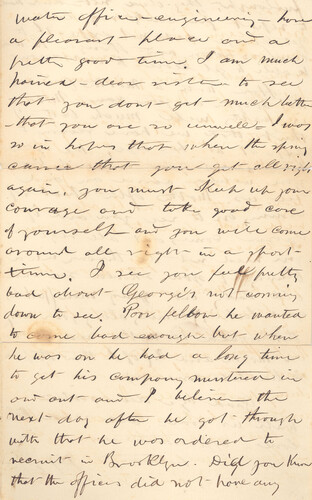 water office - engineering - have
a pleasant place and a
pretty good time. I am much
pained - dear sister to see
that you dont get much better
- that you are so unwell - I was
so in hopes that when the spring
came that you get all right
again. you must keep up your
courage and take good care
of yourself and you will come
around all right - in a short
time. I see you feel pretty
bad about George's not coming
down to see. Poor fellow he wanted
to come bad enough but when
he was on he had a long time
to get his company mustered in
and out and I believe the
next day after he got through
with that he was ordered to
recruit in Brooklyn. Did you know
that the officers did not have any